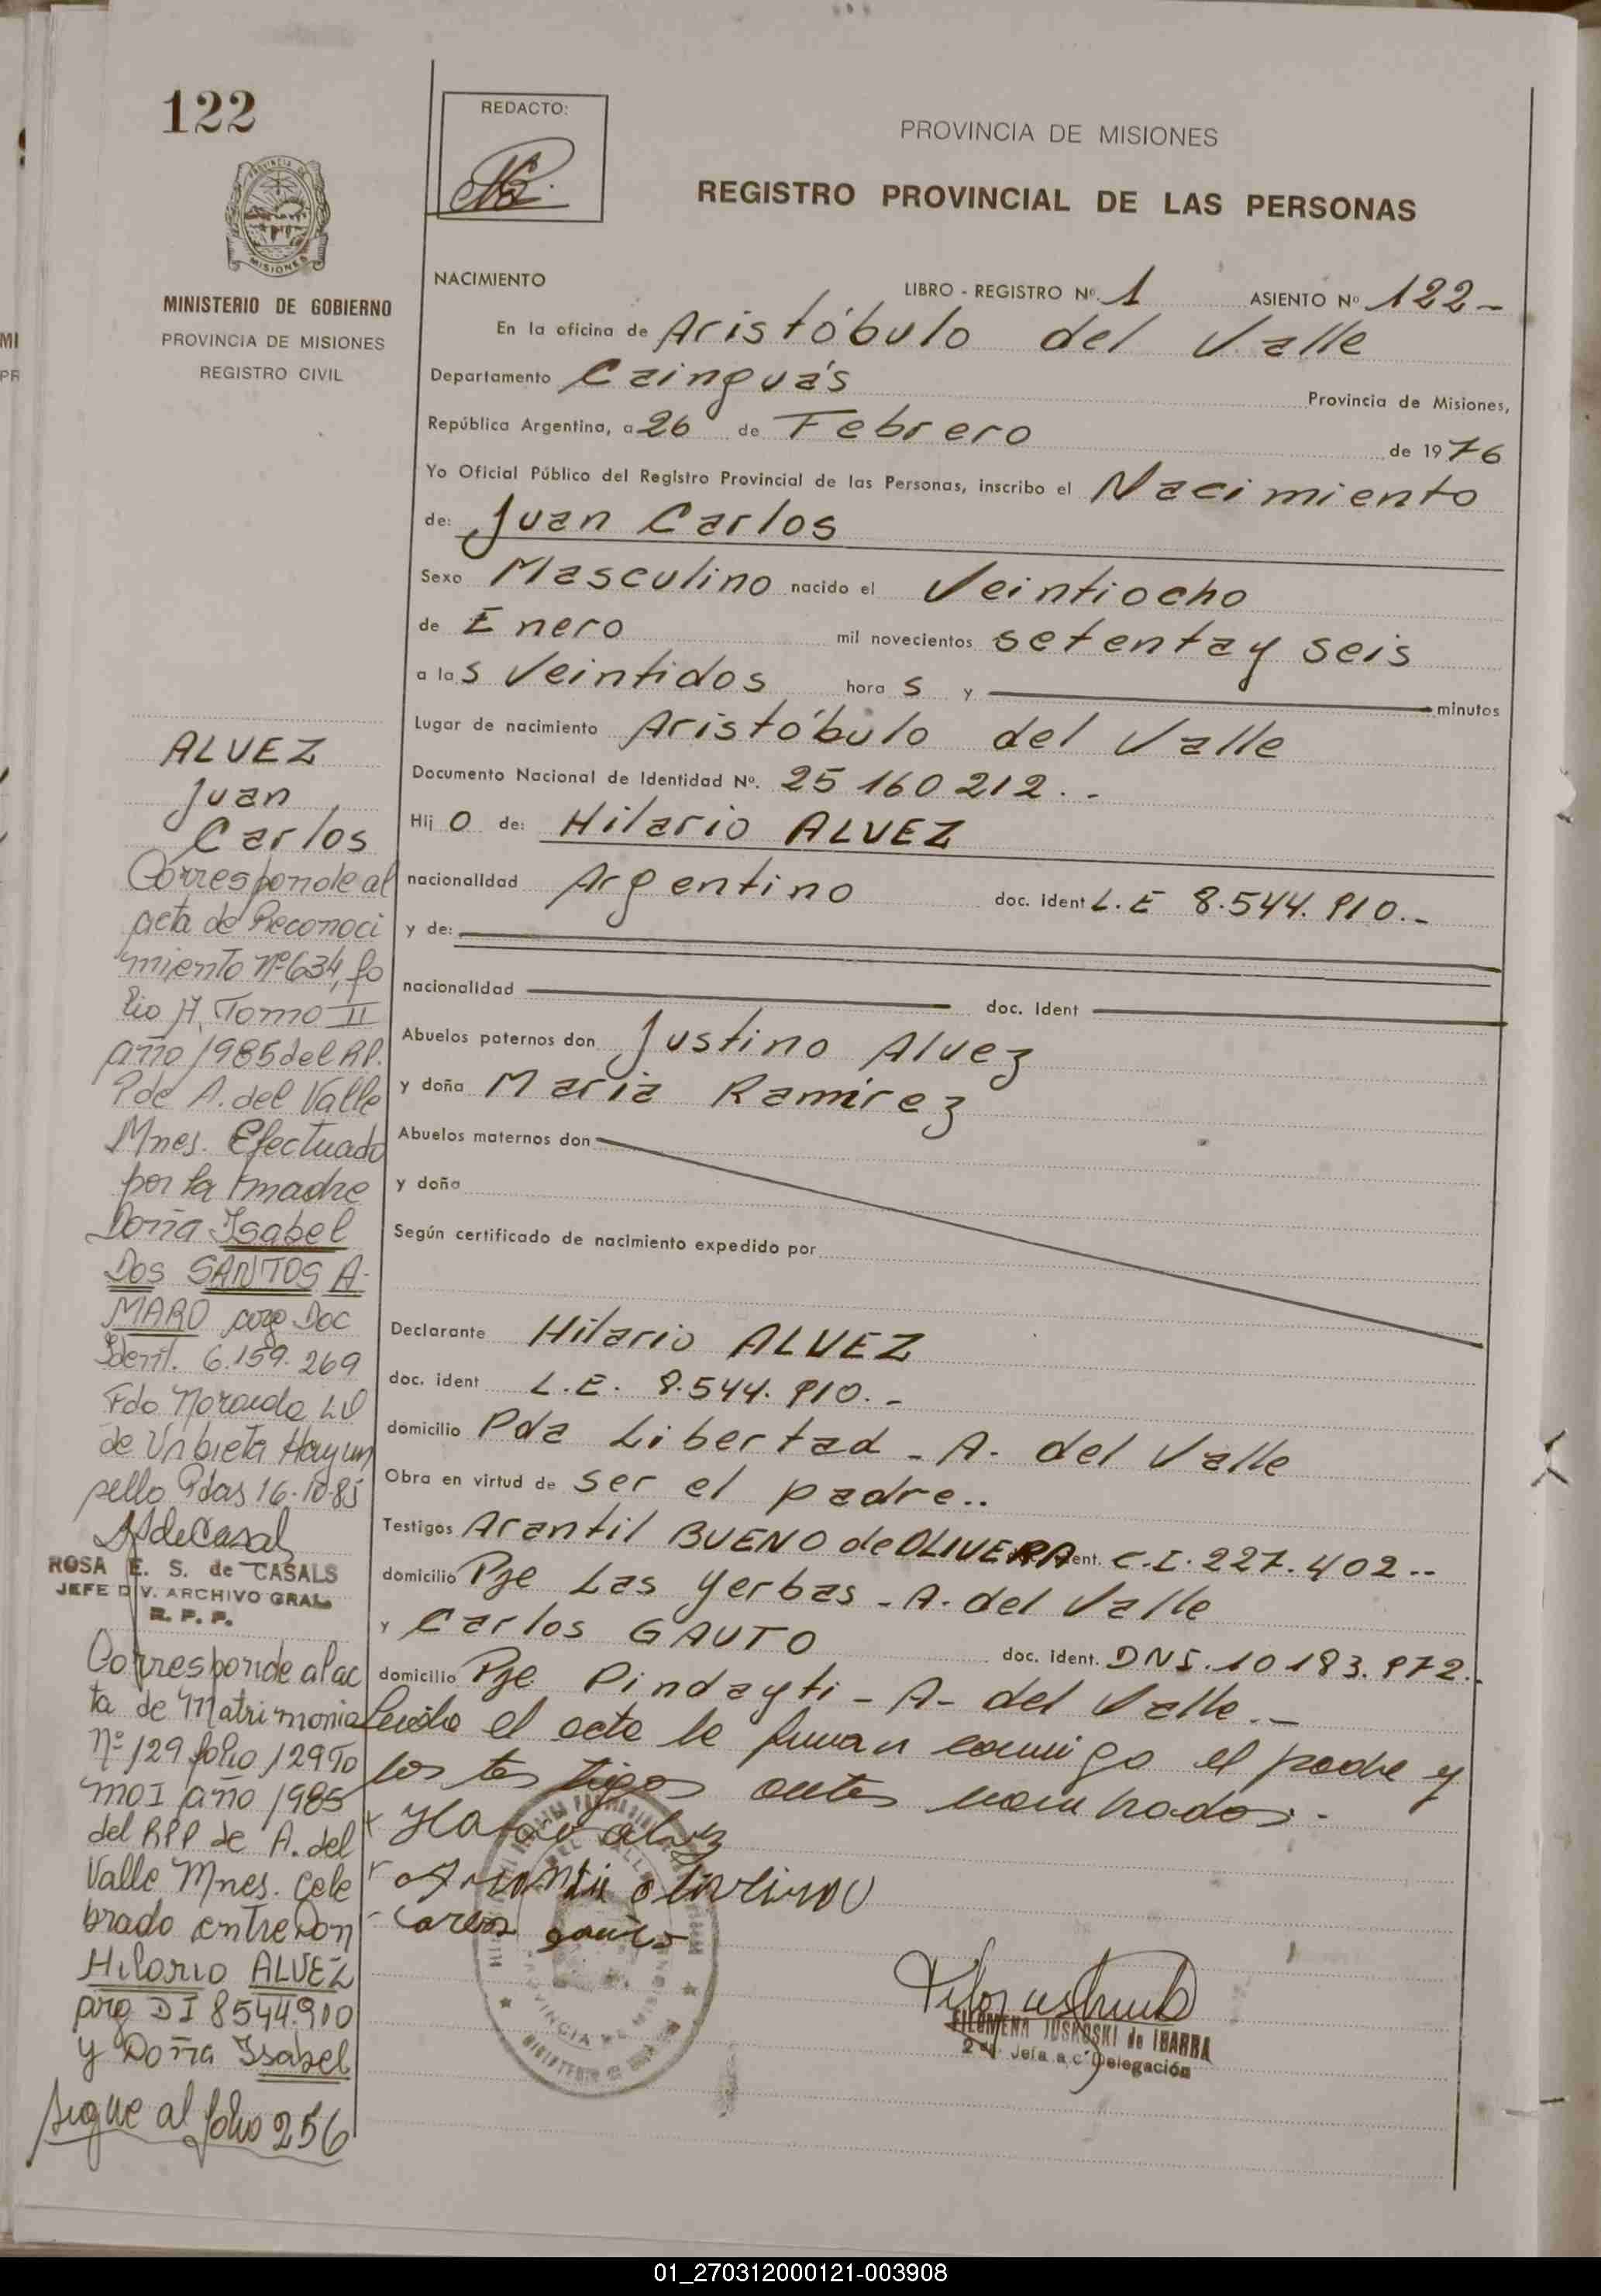 122
REDACTO:
PROVINCIA DE MISIONES
REGISTRO PROVINCIAL DE LAS PERSONAS
MISIONES
MINISTERIO DE GOBIERNO
PROVINCIA DE MISIONES
REGISTRO CIVIL
NACIMIENTO LIBRO - REGISTRO Nº. 1 ASIENTO Nº 122-
En la oficina de Aristóbulo del Valle
Departamento Cainguás Provincia de Misiones,
República Argentina, a 26 de Febrero de 1976
Yo Oficial Público del Registro Provincial de las Personas, inscribo el Nacimiento
de: Juan Carlos
Sexo Masculino nacido el Veintiocho
de Enero mil novecientos setenta y seis
a las Veintidos horas y minutos
Lugar de nacimiento Aristóbulo del Valle
Documento Nacional de Identidad Nº. 25 160 212. -
Hijo de: Hilario ALVEZ
nacionalidad Argentino doc. ident L.E 8.544.910.-
y de:
nacionalidad doc. Ident
Abuelos paternos don Justino Alvez
y doña Maria Ramirez
Abuelos maternos don
y doña
Según certificado de nacimiento expedido por
Declarante Hilario ALVEZ
doc. ident L.E. 8.544.910.-
domicilio Pda Libertad - A. del Valle
Obra en virtud de ser el padre..
Testigos Arantil BUENO de OLIVERA ent. C.I. 227.402--
domicilio Pje Las Yerbas - A. del Valle
y Carlos GAUTO doc. ident. DNI. 10 183.972.-
domicilio Pje Pindayti - A- del Valle.-
Leida el acta la firman conmigo el padre y
los testigos antes nombrados.-
ALVEZ
Juan
Carlos
Corresponde al
acta de Reconoci
miento Nº 634, fo
lio A, Tomo II
año 1985 del RP.
P de A. del Valle
Mnes. Efectuado
por la madre
Doña Isabel
DOS SANTOS A-
MARO arg Doc
Ident. 6.159.269
Fdo
de Urbieta Hay un
sello Pdas 16-10-85
ROSA E. S. de CASALS
JEFE DIV. ARCHIVO GRAL.
R. P. P.
Corresponde al ac
ta de Matrimonio
Nº 129 folio 129 To
mo I año 1985
del RPP de A. del
Valle Mnes. Cele
brado entre Don
Hilario ALVEZ
arg DI 8544.910
y Doña Isabel
sigue al folio 256
FILOMENA JUSKOSKI de IBARRA
2da. Jefa a c Delegación
01_270312000121-003908